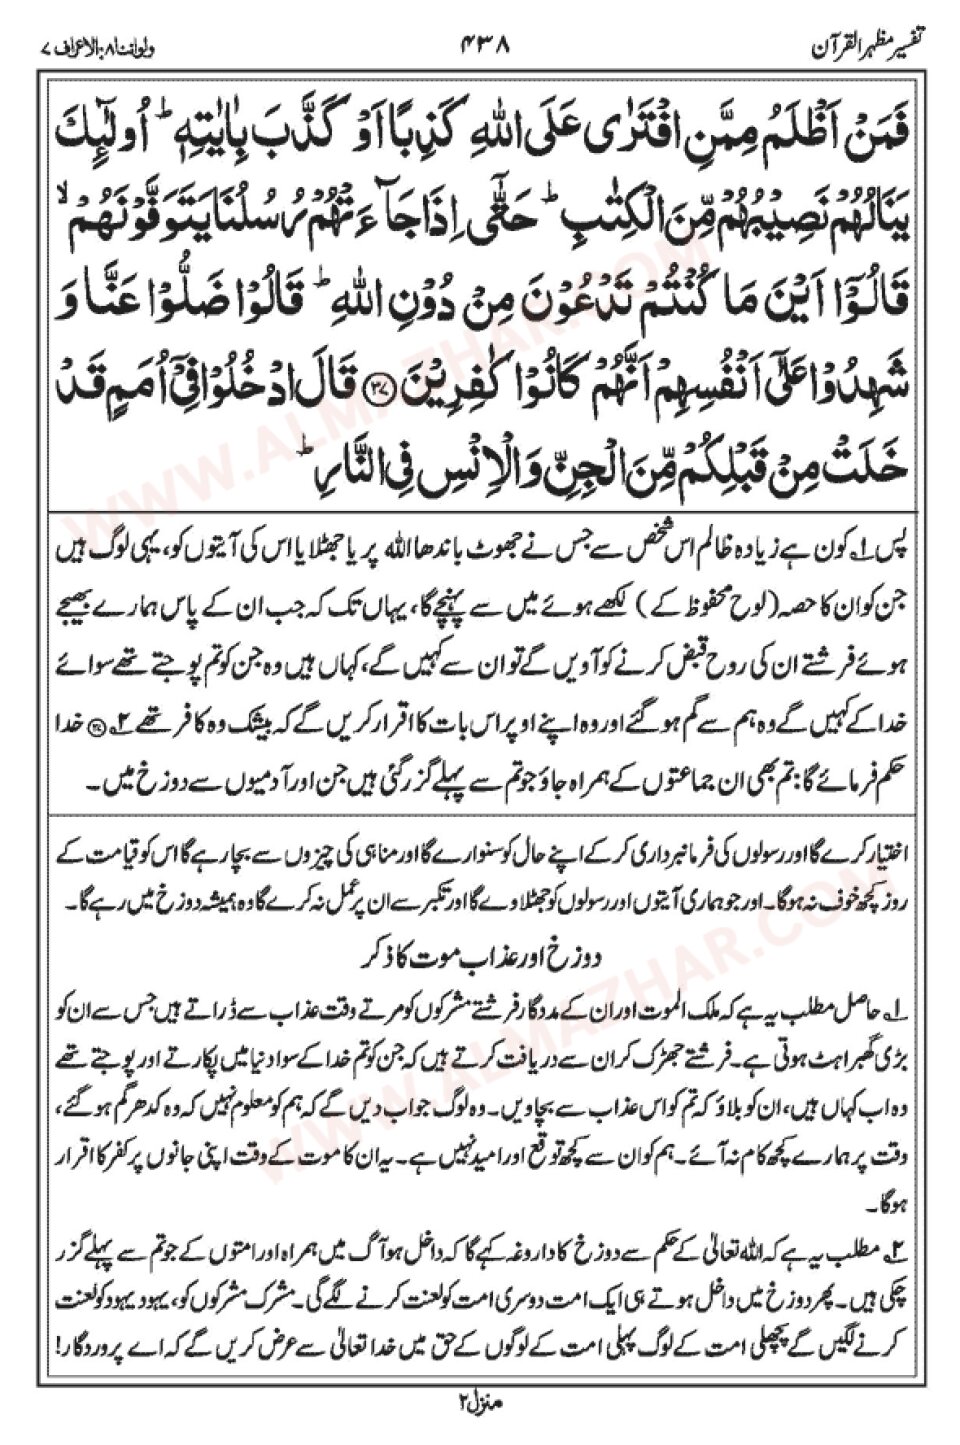 تفسیر مظہر القرآن ۴۳۸ ولواننا ۸: الاعراف ۷
فَمَنْ اَظْلَمُ مِمَّنِ افْتَرٰى عَلَى اللّٰهِ كَذِبًا اَوْ كَذَّبَ بِاٰيٰتِهٖ ؕ اُولٰٓئِكَ
يَنَالُهُمْ نَصِيْبُهُمْ مِّنَ الْكِتٰبِ ؕ حَتّٰٓى اِذَا جَآءَتْهُمْ رُسُلُنَا يَتَوَفَّوْنَهُمْ ۙ
قَالُوْۤا اَيْنَ مَا كُنْتُمْ تَدْعُوْنَ مِنْ دُوْنِ اللّٰهِ ؕ قَالُوْا ضَلُّوْا عَنَّا وَ
شَهِدُوْا عَلٰٓى اَنْفُسِهِمْ اَنَّهُمْ كَانُوْا كٰفِرِيْنَ ۳۷ قَالَ ادْخُلُوْا فِيْۤ اُمَمٍ قَدْ
خَلَتْ مِنْ قَبْلِكُمْ مِّنَ الْجِنِّ وَالْاِنْسِ فِى النَّارِ ؕ
پس ۱؎ کون ہے زیادہ ظالم اس شخص سے جس نے جھوٹ باندھا اللہ پر یا جھٹلایا اس کی آیتوں کو، یہی لوگ ہیں
جن کو ان کا حصہ (لوح محفوظ کے) لکھے ہوئے میں سے پہنچے گا، یہاں تک کہ جب ان کے پاس ہمارے بھیجے
ہوئے فرشتے ان کی روح قبض کرنے کو آویں گے تو ان سے کہیں گے، کہاں ہیں وہ جن کو تم پوجتے تھے سوائے
خدا کے کہیں گے وہ ہم سے گم ہو گئے اور وہ اپنے اوپر اس بات کا اقرار کریں گے کہ بیشک وہ کافر تھے ۲؎ ۳۷ خدا
حکم فرمائے گا: تم بھی ان جماعتوں کے ہمراہ جاؤ جو تم سے پہلے گزر گئی ہیں جن اور آدمیوں سے دوزخ میں۔
اختیار کرے گا اور رسولوں کی فرمانبرداری کر کے اپنے حال کو سنوارے گا اور مناہی کی چیزوں سے بچا رہے گا اس کو قیامت کے
روز کچھ خوف نہ ہوگا۔ اور جو ہماری آیتوں اور رسولوں کو جھٹلاوے گا اور تکبر سے ان پر عمل نہ کرے گا وہ ہمیشہ دوزخ میں رہے گا۔
دوزخ اور عذاب موت کا ذکر
۱؎ حاصل مطلب یہ ہے کہ ملک الموت اور ان کے مددگار فرشتے مشرکوں کو مرتے وقت عذاب سے ڈراتے ہیں جس سے ان کو
بڑی گھبراہٹ ہوتی ہے۔ فرشتے جھڑک کر ان سے دریافت کرتے ہیں کہ جن کو تم خدا کے سوا دنیا میں پکارتے اور پوجتے تھے
وہ اب کہاں ہیں، ان کو بلاؤ کہ تم کو اس عذاب سے بچاویں۔ وہ لوگ جواب دیں گے کہ ہم کو معلوم نہیں کہ وہ کدھر گم ہو گئے،
وقت پر ہمارے کچھ کام نہ آئے۔ ہم کو ان سے کچھ توقع اور امید نہیں ہے۔ یہ ان کا موت کے وقت اپنی جانوں پر کفر کا اقرار
ہوگا۔
۲؎ مطلب یہ ہے کہ اللہ تعالیٰ کے حکم سے دوزخ کا داروغہ کہے گا کہ داخل ہو آگ میں ہمراہ اور امتوں کے جو تم سے پہلے گزر
چکی ہیں۔ پھر دوزخ میں داخل ہوتے ہی ایک امت دوسری امت کو لعنت کرنے لگے گی۔ مشرک مشرکوں کو، یہود یہود کو لعنت
کرنے لگیں گے پچھلی امت کے لوگ پہلی امت کے لوگوں کے حق میں خدا تعالیٰ سے عرض کریں گے کہ اے پروردگار!
منزل ۲
WWW.ALMAZHAR.COM
WWW.ALMAZHAR.COM